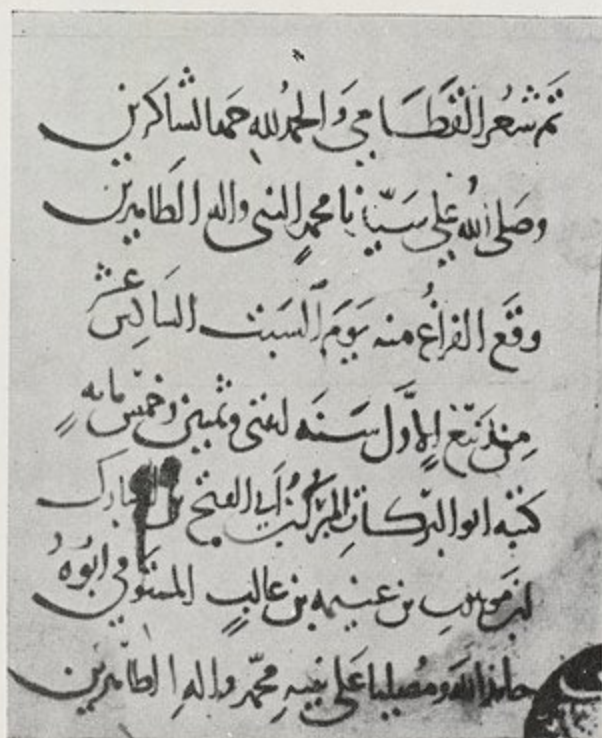 تم شعر القطامي والحمد لله حمد الشاكرين
وصلى الله على سيدنا محمد النبي واله الطاهرين
وقع الفراغ منه يوم السبت السادس عشر
من ربيع الاول سنه اثنتي وثمنين وخمس مايه
كتبه ابو البركات المبارك ابي الفتح بن المبارك
بن موهوب بن غنيمه بن غالب المستوفي ابوه
حامدا لله ومصليا على نبيه محمد واله الطاهرين